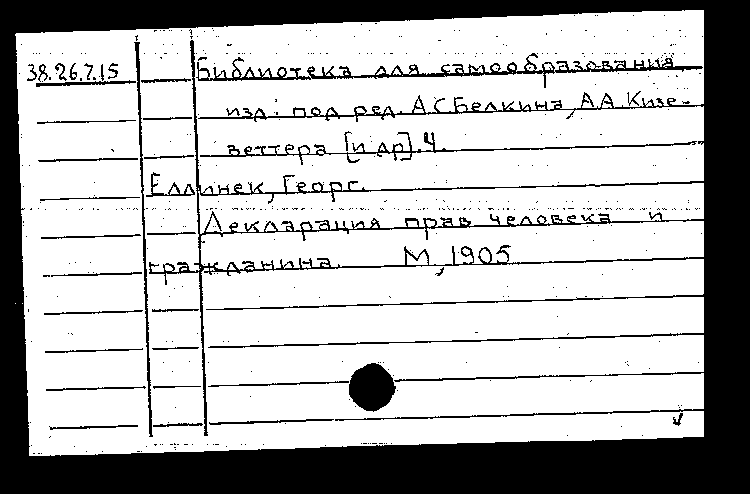 38.26.7.15 Библиотека для самообразования
изд: под ред. А.С Белкина, А.А. Кизе-
веттера [и др]. Ч.
Еллинек, Георг.
Декларация прав человека и
гражданина. М, 1905